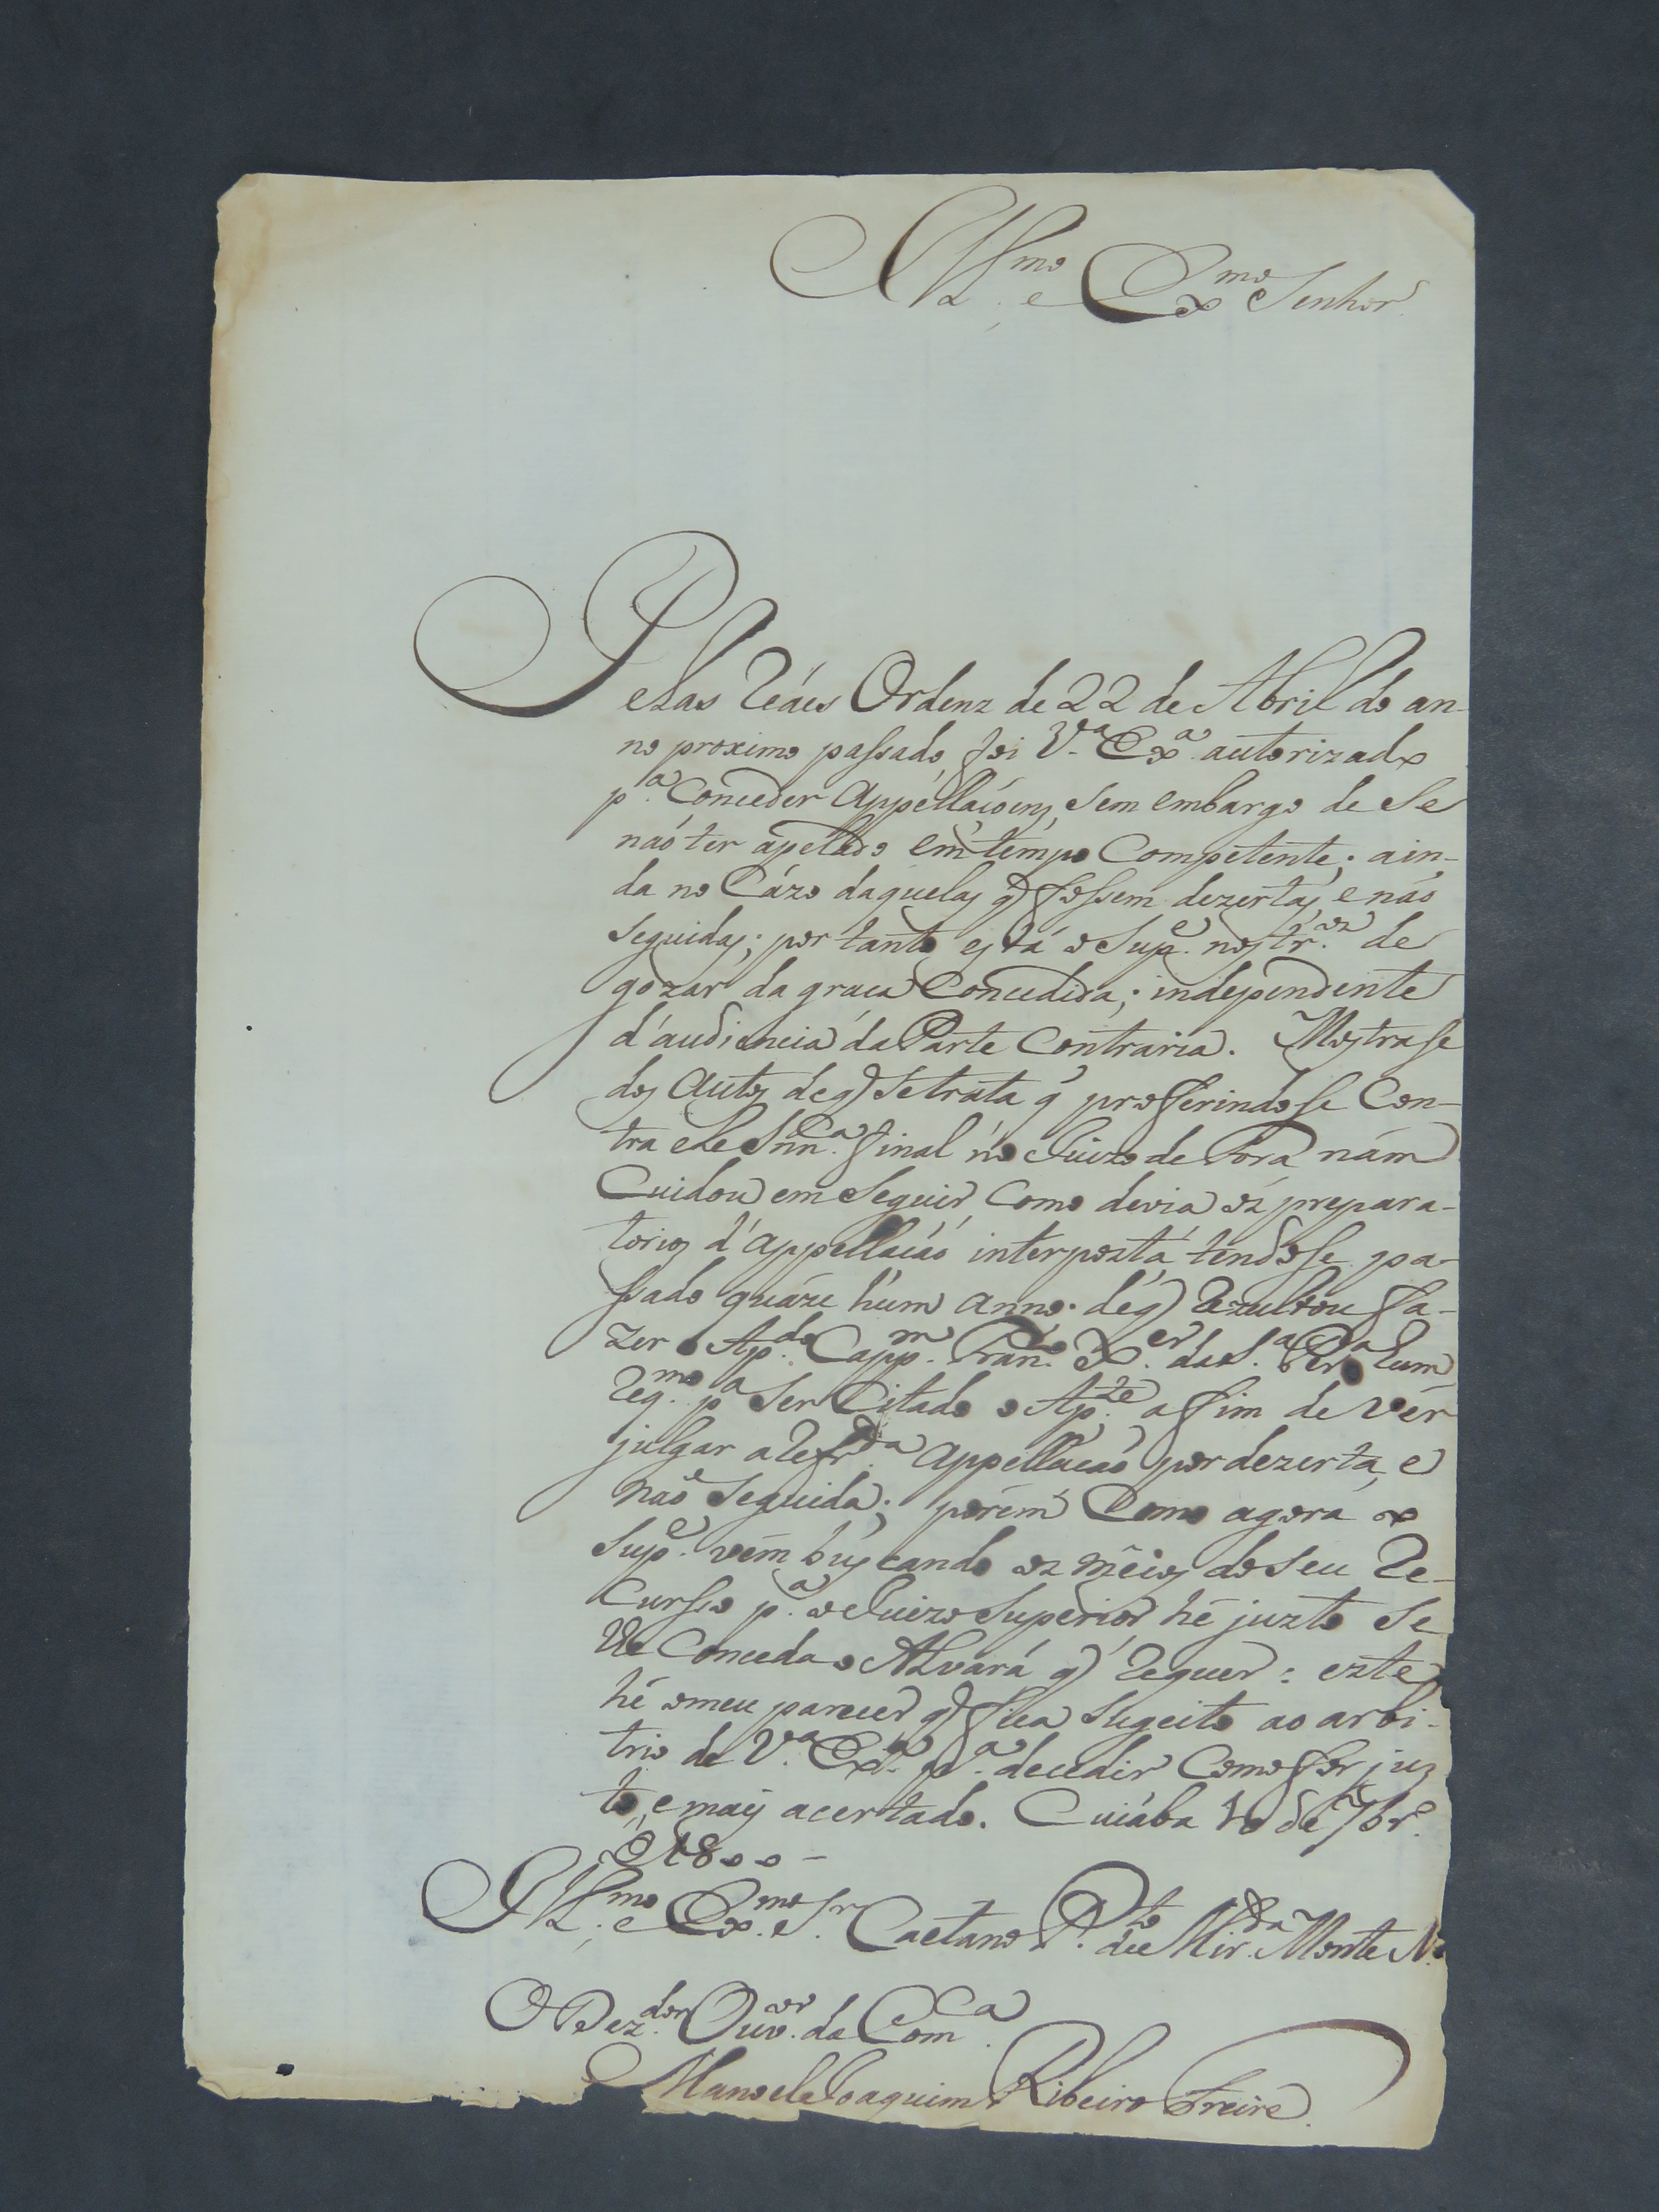 Ill.mo e Ex.mo Senhor
Pelas Reáes Ordenz de 22 de Abril do an-
no proximo passado foi V.a Ex.a autorizado
p.a Conceder Appellaçoens, sem embargo de se
naó ter apelado em tempo Competente; ain-
da no Cázo daquelas q' fossem dezertas, e náo
seguidas; por tanto está o Sup.e nos tr.oz de
gozar da graca Concedida; independente
d'audiencia da Parte Contraria. Mostrase
dos Autos de q' se trata q' profferindose Con-
tra ele Snn.ca final no Juizo de Fora nám
Cuidou em seguir, Como devia oz prepara-
torios d'Appellacáo interpozta, tendose pa-
ssado quáze hum anno. de q' Rezultou fa-
zer o Ap.do Capp.m Fran.co X.er da S.a Per.a hum
Req.mo p.a ser Citado o Ap.te affim de vêr
julgar a Refr.da Appellacaó por dezerta, e
naó seguida; porêm Como agora o
Sup.e vêm buscando oz mêios do seu Re-
Cursso p.a o Juizo Superior hé juzto se
lhe Conceda o Alvará q' Requer: ezte
hé o meu parecer q' fica sugeito ao arbi-
trio de V.a Ex.a p.a decedir Como for juz
to, e mais acertado. Cuiába 10 de 7br.o
d 1800 -
Ill.mo e Ex.mo Sr. Caetano P.to de Mir.da Monte N.o
O Dez.dor Ouv.or da Com.ca
Manoel Joaquim Ribeiro Freire.